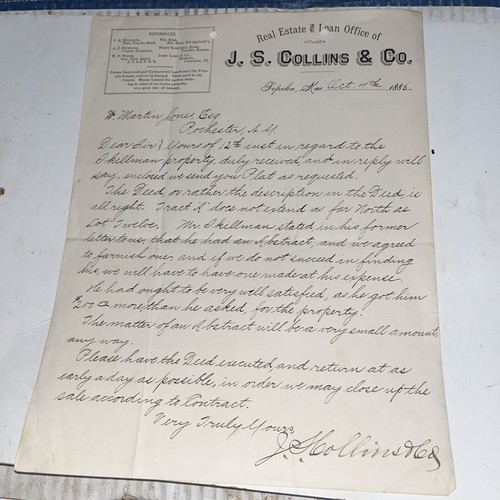 REFERENCES
Real Estate and Loan Office of
J. S. COLLINS & CO.
Topeka, Kas. Oct. 1886.
W. Martin Jones, Esq
Rochester, N.Y.
Dear Sir; Yours of 12th inst in regard to the
Skellman property, duly received, and in reply will
say, enclosed we send you Plat as requested.
The Deed, or rather the description in the Deed, is
all right. Tract "K" does not extend as far North as
Lot Twelve. Mr. Skellman stated, in his former
letter to us, that he had an Abstract, and we agreed
to furnish one, and if we do not succeed in finding
his, we will have to have one made at his expense.
He had ought to be very well satisfied, as he got him
$200 more than he asked, for the property.
The matter of an Abstract will be a very small amount,
any way.
Please have the Deed executed, and return at as
early a day as possible, in order we may close up the
sale according to Contract.
Very Truly Yours,
J. S. Collins & Co